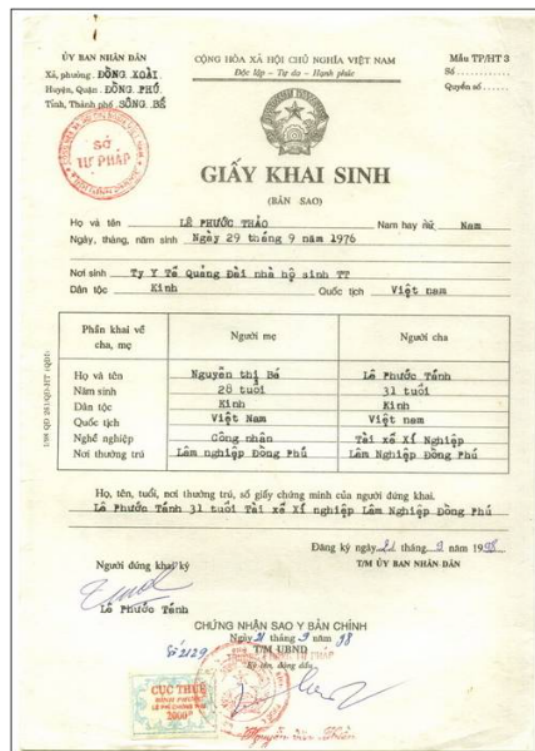 ỦY BAN NHÂN DÂN
Xã, phường. ĐỒNG XOÀI.
Huyện, Quận . ĐỒNG PHÚ.
Tỉnh, Thành phố . SÔNG BÉ
CỘNG HÒA XÃ HỘI CHỦ NGHĨA VIỆT NAM
Độc lập - Tự do - Hạnh phúc
Mẫu TP/HT 3
Số ............
Quyển số ......
SỞ
TƯ PHÁP
GIẤY KHAI SINH
(BẢN SAO)
Họ và tên LÊ PHƯỚC THẢO Nam hay nữ Nam
Ngày, tháng, năm sinh Ngày 29 tháng 9 năm 1976
Nơi sinh Ty Y Tế Quảng Đài nhà hộ sinh TT
Dân tộc Kinh Quốc tịch Việt nam
Phần khai về cha, mẹ Người mẹ Người cha
Họ và tên Nguyễn thị Bé Lê Phước Tánh
Năm sinh 28 tuổi 31 tuổi
Dân tộc Kinh Kinh
Quốc tịch Việt Nam Việt nam
Nghề nghiệp Công nhân Tài xế Xí Nghiệp
Nơi thường trú Lâm nghiệp Đồng Phú Lâm Nghiệp Đồng Phú
Họ, tên, tuổi, nơi thường trú, số giấy chứng minh của người đứng khai.
Lê Phước Tánh 31 tuổi Tài xế Xí nghiệp Lâm Nghiệp Đồng Phú
Đăng ký ngày 21 tháng 9 năm 1998
Người đứng khai ký
T/M ỦY BAN NHÂN DÂN
Lê Phước Tánh
CHỨNG NHẬN SAO Y BẢN CHÍNH
Ngày 21 tháng 9 năm 98
Số 2129
T/M UBND
Ký tên, đóng dấu
CỤC THUẾ
2000đ